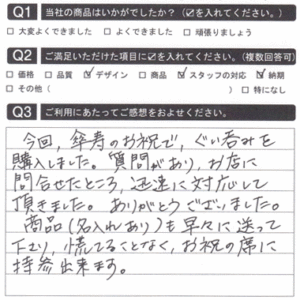 Q1 当社の商品はいかがでしたか？（☑を入れてください。）
□ 大変よくできました □ よくできました □ 頑張りましょう
Q2 ご満足いただけた項目に☑を入れてください。（複数回答可）
□ 価格 □ 品質 ☑ デザイン □ 商品 ☑ スタッフの対応 ☑ 納期
□ その他（ ） □ 特になし
Q3 ご利用にあたってご感想をおよせください。
今回、傘寿のお祝で、ぐい呑みを
購入しました。質問があり、お店に
問合せたところ、迅速に対応して
頂きました。ありがとうございました。
商品（名入れあり）も早々に送って
下さり、慌てることなく、お祝の席に
持参出来ます。